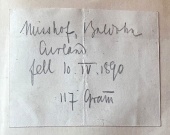 Misshof, Baldohn
Curland
fell 10 IV. 1890
117 Gram